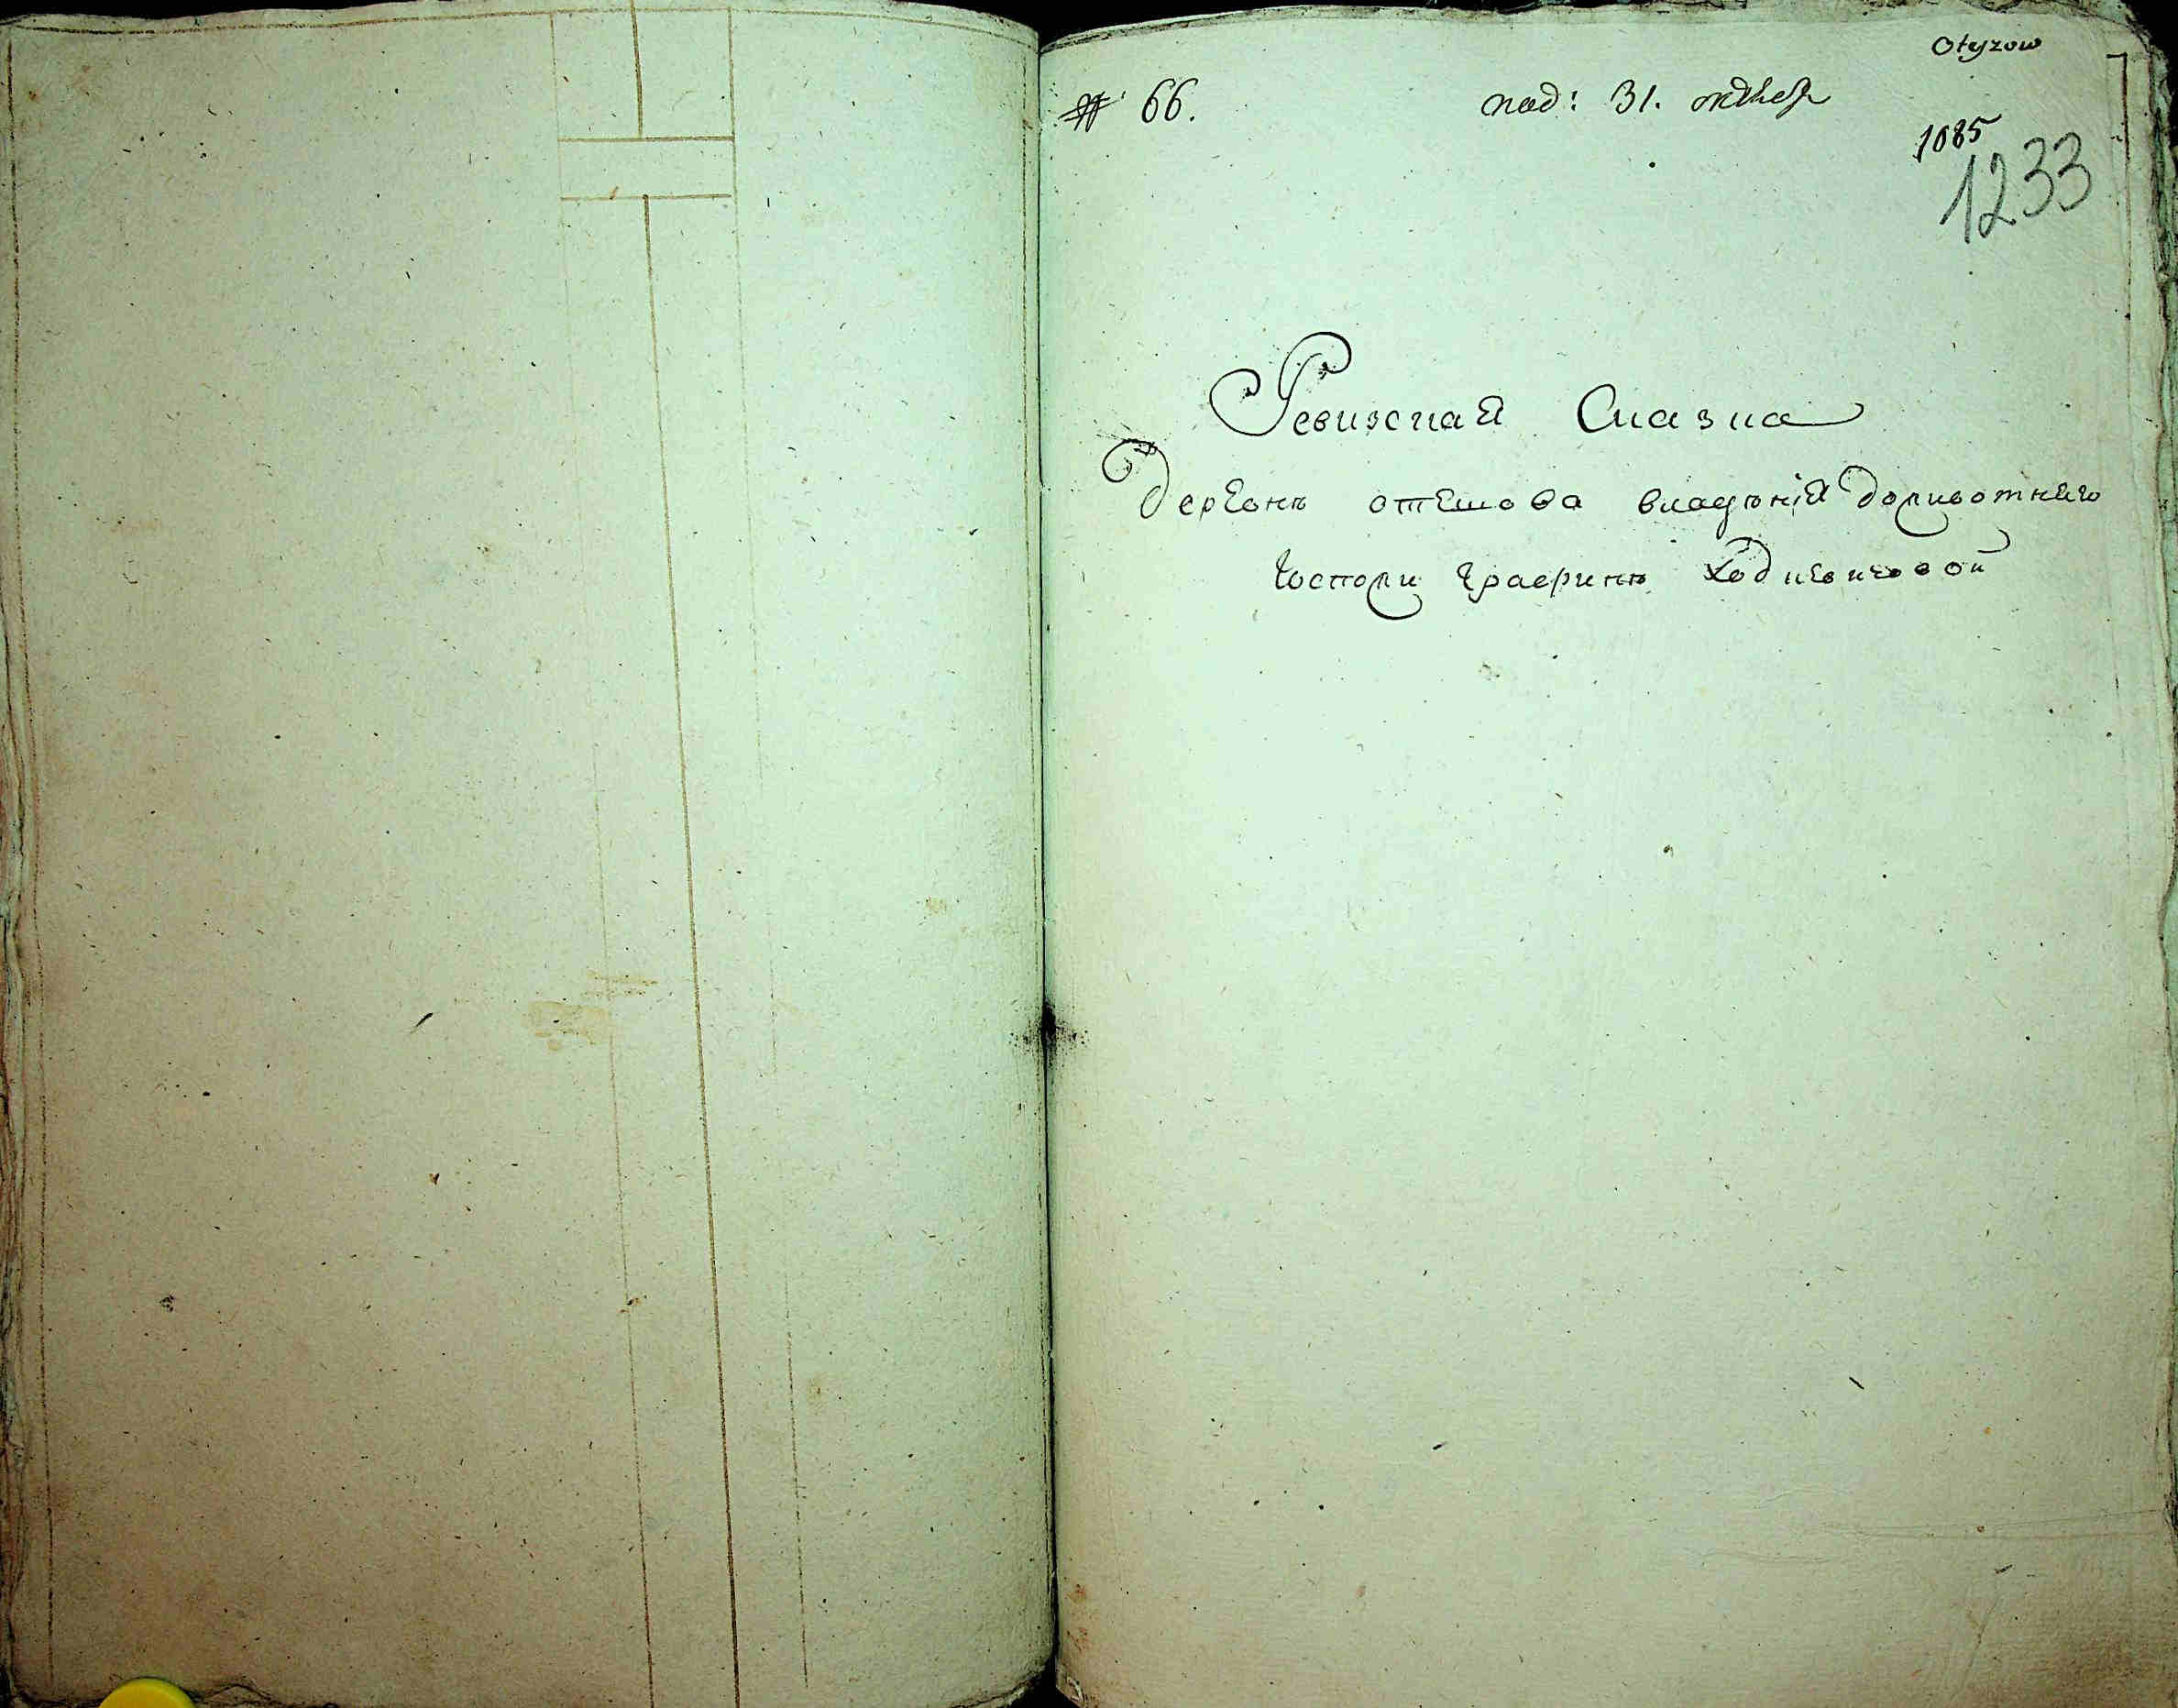 Otyzow
№ 66. под: 31. октбр
1085
1233
Ревизская Сказка
Деревнѣ отешова владѣнія доживотняго
Госпожи Графинѣ Ходкевичовой